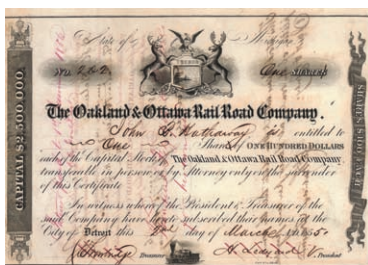 State of Michigan
No. 262. One SHARES
The Oakland & Ottawa Rail Road Company.
John C. Hathaway is entitled to
One Shares ONE HUNDRED DOLLARS
each of the Capital Stock of The Oakland & Ottawa Rail Road Company
transferable in person or by Attorney only on the surrender
of this Certificate
In witness whereof the President & Treasurer of the
said Company have hereto subscribed their names at the
City of Detroit this 2nd day of March 18
Treasurer
V. President
CAPITAL $2,500,000.
SHARES $100 EACH